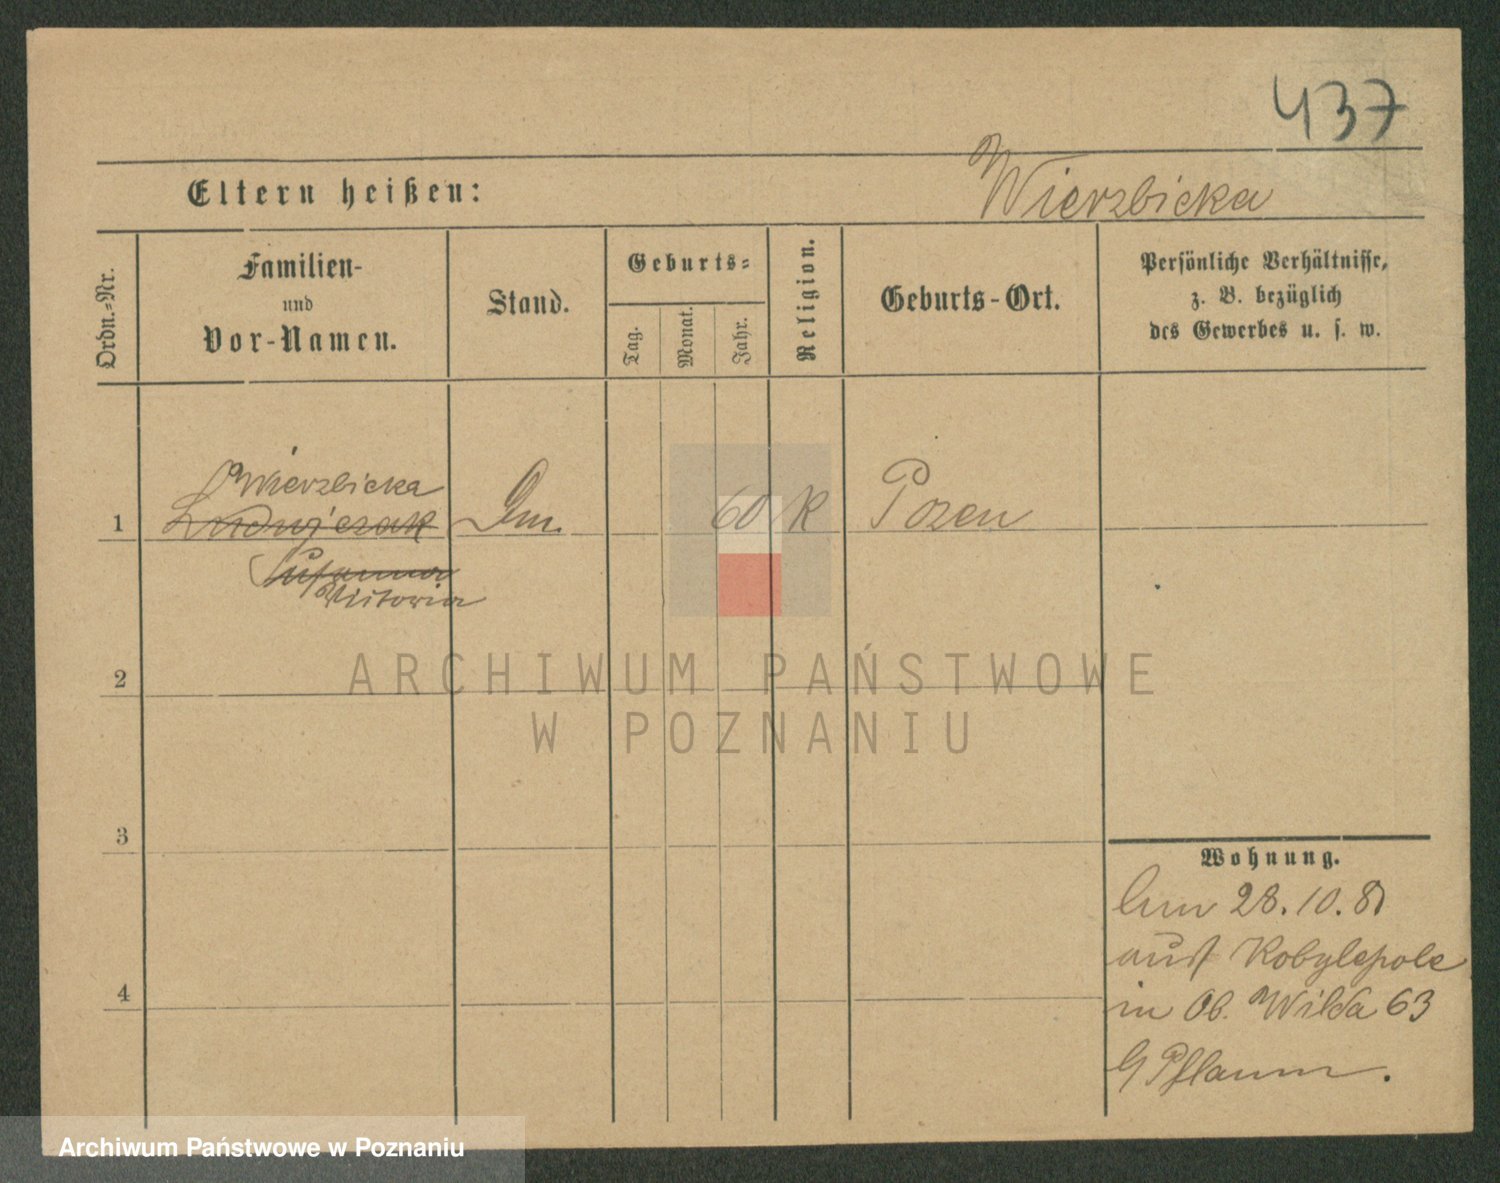 437
Wierzbicka
Eltern heißen:
Ordn.-Nr.
Familien-
und
Vor-Namen.
Stand.
Geburts-
Tag.
Monat.
Jahr.
Religion.
Geburts-Ort.
Persönliche Verhältnisse,
z. B. bezüglich
des Gewerbes u. s. w.
Wierzbicka
1 Ludwiczak 60 K Posen
Susanna
Victoria
2
3
4
Wohnung.
28.10.81
aus Kobylepole
in Ob. Wilda 63
Pflaum.
ARCHIWUM PAŃSTWOWE
W POZNANIU
Archiwum Państwowe w Poznaniu